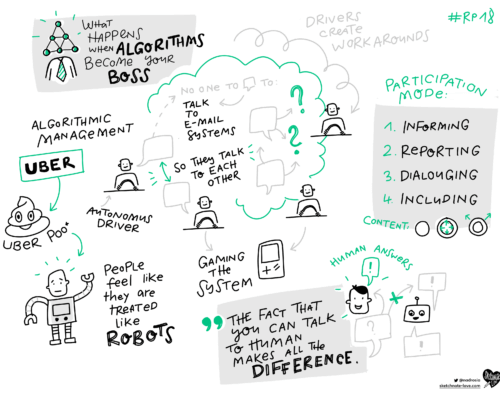 WHAT
HAPPENS
WHEN ALGORITHMS
BECOME YOUR
BOSS
DRIVERS
CREATE
WORKAROUNDS
#RP18
NO ONE TO TO:
TALK
TO
E-MAIL
SYSTEMS
?
?
SO THEY TALK
TO EACH
OTHER
PARTICIPATION
MODE:
1. INFORMING
2. REPORTING
3. DIALOUGING
4. INCLUDING
CONTENT:
ALGORITHMIC
MANAGEMENT
UBER
UBER POO
AUTONOMUS
DRIVER
GAMING
THE
SYSTEM
PEOPLE
feel like
they are
TREATED
like
ROBOTS
HUMAN ANSWERS
!
+
?
!
!
"THE FACT THAT
YOU CAN TALK
TO HUMAN
MAKES ALL THE
DIFFERENCE.
sketchnote-love.com